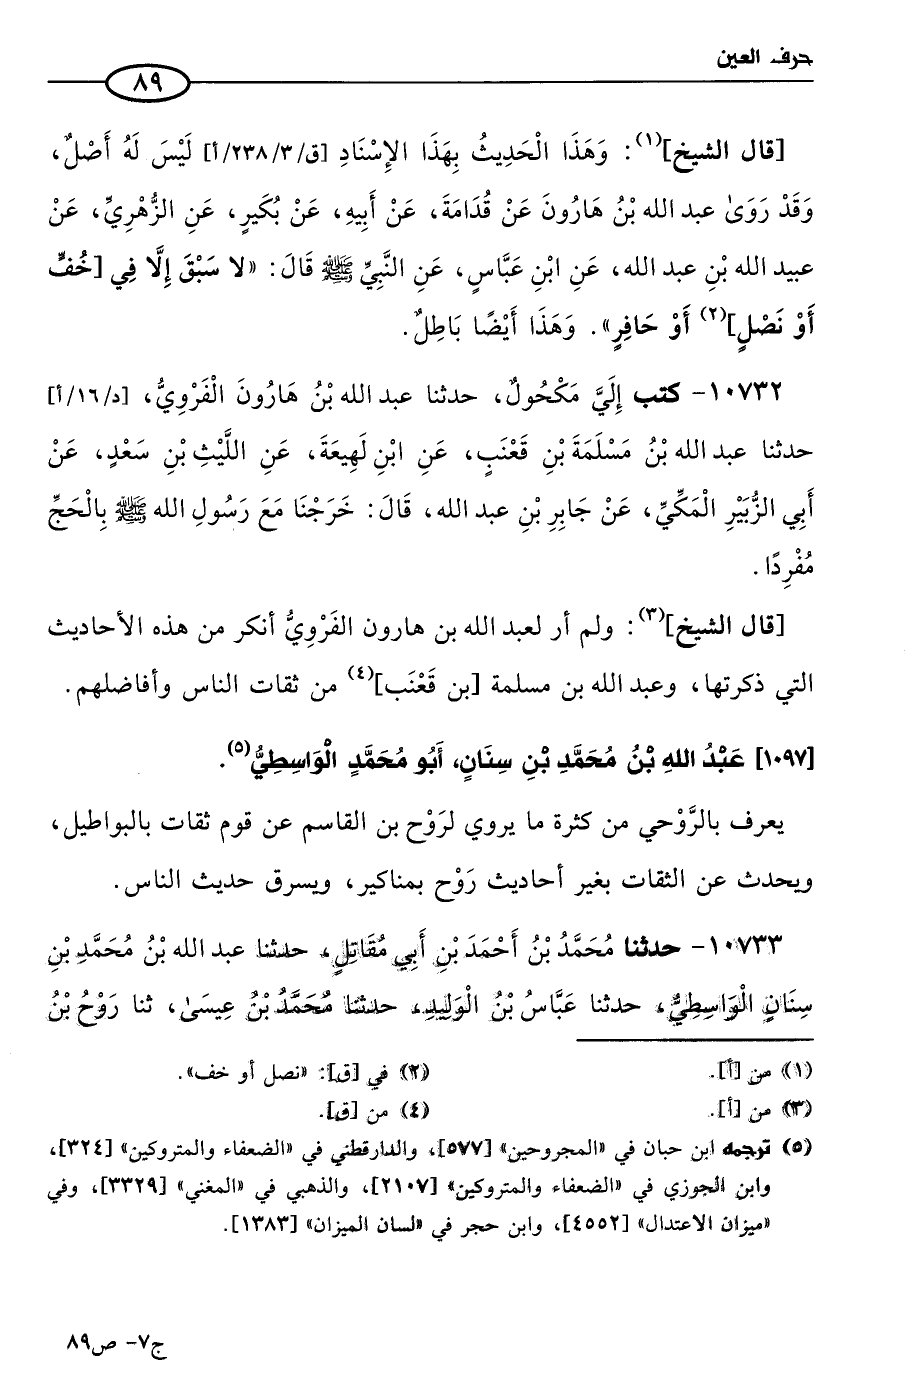 حرف العين
٨٩
[قال الشيخ](١): وَهَذَا الْحَدِيثُ بِهَذَا الإِسْنَادِ [ق/٢٣٨/٣/أ] لَيْسَ لَهُ أَصْلٌ،
وَقَدْ رَوَىٰ عبد الله بْنُ هَارُونَ عَنْ قُدَامَةَ، عَنْ أَبِيهِ، عَنْ بُكَيرٍ، عَنِ الزُّهْرِيِّ، عَنْ
عبيد الله بْنِ عبد الله، عَنِ ابْنِ عَبَّاسٍ، عَنِ النَّبِيِّ ﷺ قَالَ: «لا سَبْقَ إِلَّا فِي [خُفٍّ
أَوْ نَصْلٍ](٢) أَوْ حَافِرٍ». وَهَذَا أَيْضًا بَاطِلٌ.
١٠٧٣٢- كتب إِلَيَّ مَكْحُولٌ، حدثنا عبد الله بْنُ هَارُونَ الْفَرْوِيُّ، [د/١٦/أ]
حدثنا عبد الله بْنُ مَسْلَمَةَ بْنِ قَعْنَبٍ، عَنِ ابْنِ لَهِيعَةَ، عَنِ اللَّيْثِ بْنِ سَعْدٍ، عَنْ
أَبِي الزُّبَيْرِ الْمَكِّيِّ، عَنْ جَابِرِ بْنِ عبد الله، قَالَ: خَرَجْنَا مَعَ رَسُولِ الله ﷺ بِالْحَجِّ
مُفْرِدًا.
[قال الشيخ](٣): ولم أر لعبد الله بن هارون الفَرْوِيُّ أنكر من هذه الأحاديث
التي ذكرتها، وعبد الله بن مسلمة [بن قَعْنَب](٤) من ثقات الناس وأفاضلهم.
[١٠٩٧] عَبْدُ اللهِ بْنُ مُحَمَّدِ بْنِ سِنَانٍ، أَبُو مُحَمَّدٍ الْوَاسِطِيُّ(٥).
يعرف بالرَّوْحي من كثرة ما يروي لرَوْح بن القاسم عن قوم ثقات بالبواطيل،
ويحدث عن الثقات بغير أحاديث رَوْح بمناكير، ويسرق حديث الناس.
١٠٧٣٣- حدثنا مُحَمَّدُ بْنُ أَحْمَدَ بْنِ أَبِي مُقَاتِلٍ، حدثنا عبد الله بْنُ مُحَمَّدِ بْنِ
سِنَانٍ الْوَاسِطِيُّ، حدثنا عَبَّاسُ بْنُ الْوَلِيدِ، حدثنا مُحَمَّدُ بْنُ عِيسَىٰ، ثنا رَوْحُ بْنُ
(١) من [أ].
(٢) في [ق]: «نصل أو خف».
(٣) من [أ].
(٤) من [ق].
(٥) ترجمه ابن حبان في «المجروحين» [٥٧٧]، والدارقطني في «الضعفاء والمتروكين» [٣٢٤]،
وابن الجوزي في «الضعفاء والمتروكين» [٢١٠٧]، والذهبي في «المغني» [٣٣٢٩]، وفي
«ميزان الاعتدال» [٤٥٥٢]، وابن حجر في «لسان الميزان» [١٣٨٣].
ج٧- ص٨٩